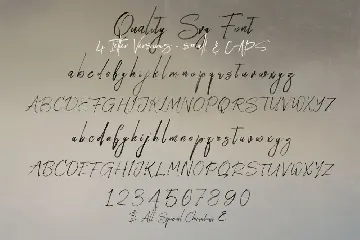 Quality Spa Font
4 Letter Versions - small & CAPS
abcdefghijklmnopqrstuvwxyz
ABCDEFGHIJKLMNOPQRSTUVWXYZ
abcdefghijklmnopqrstuvwxyz
ABCDEFGHIJKLMNOPQRSTUVWXYZ
1234567890
& All Special